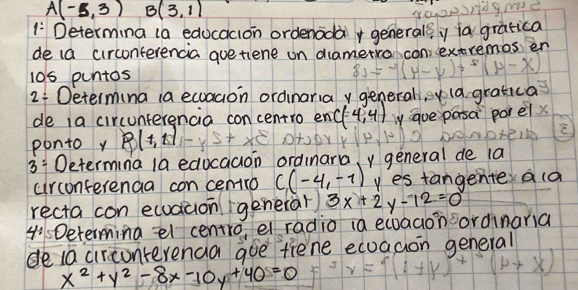 A(-5,3) B(3,1)
1: Determina la educación ordenada y general y la gratica
de la circonferencia que tiene un diametro con extremos en
los puntos
2: Determina la ecuación ordinaria y general y la gratica
de la circunferencia con centro en C(-4,4) y que pasa por el
punto y B(1,1)
3: Determina la educación ordinara y general de la
circunferencia con centro C(-4,-1) y es tangente a la
recta con ecuacion general 3x+2y-12=0
4: Determina el centro, el radio la ecuación ordinaria
de la circunferencia que tiene ecuación general
x²+y²-8x-10y+40=0